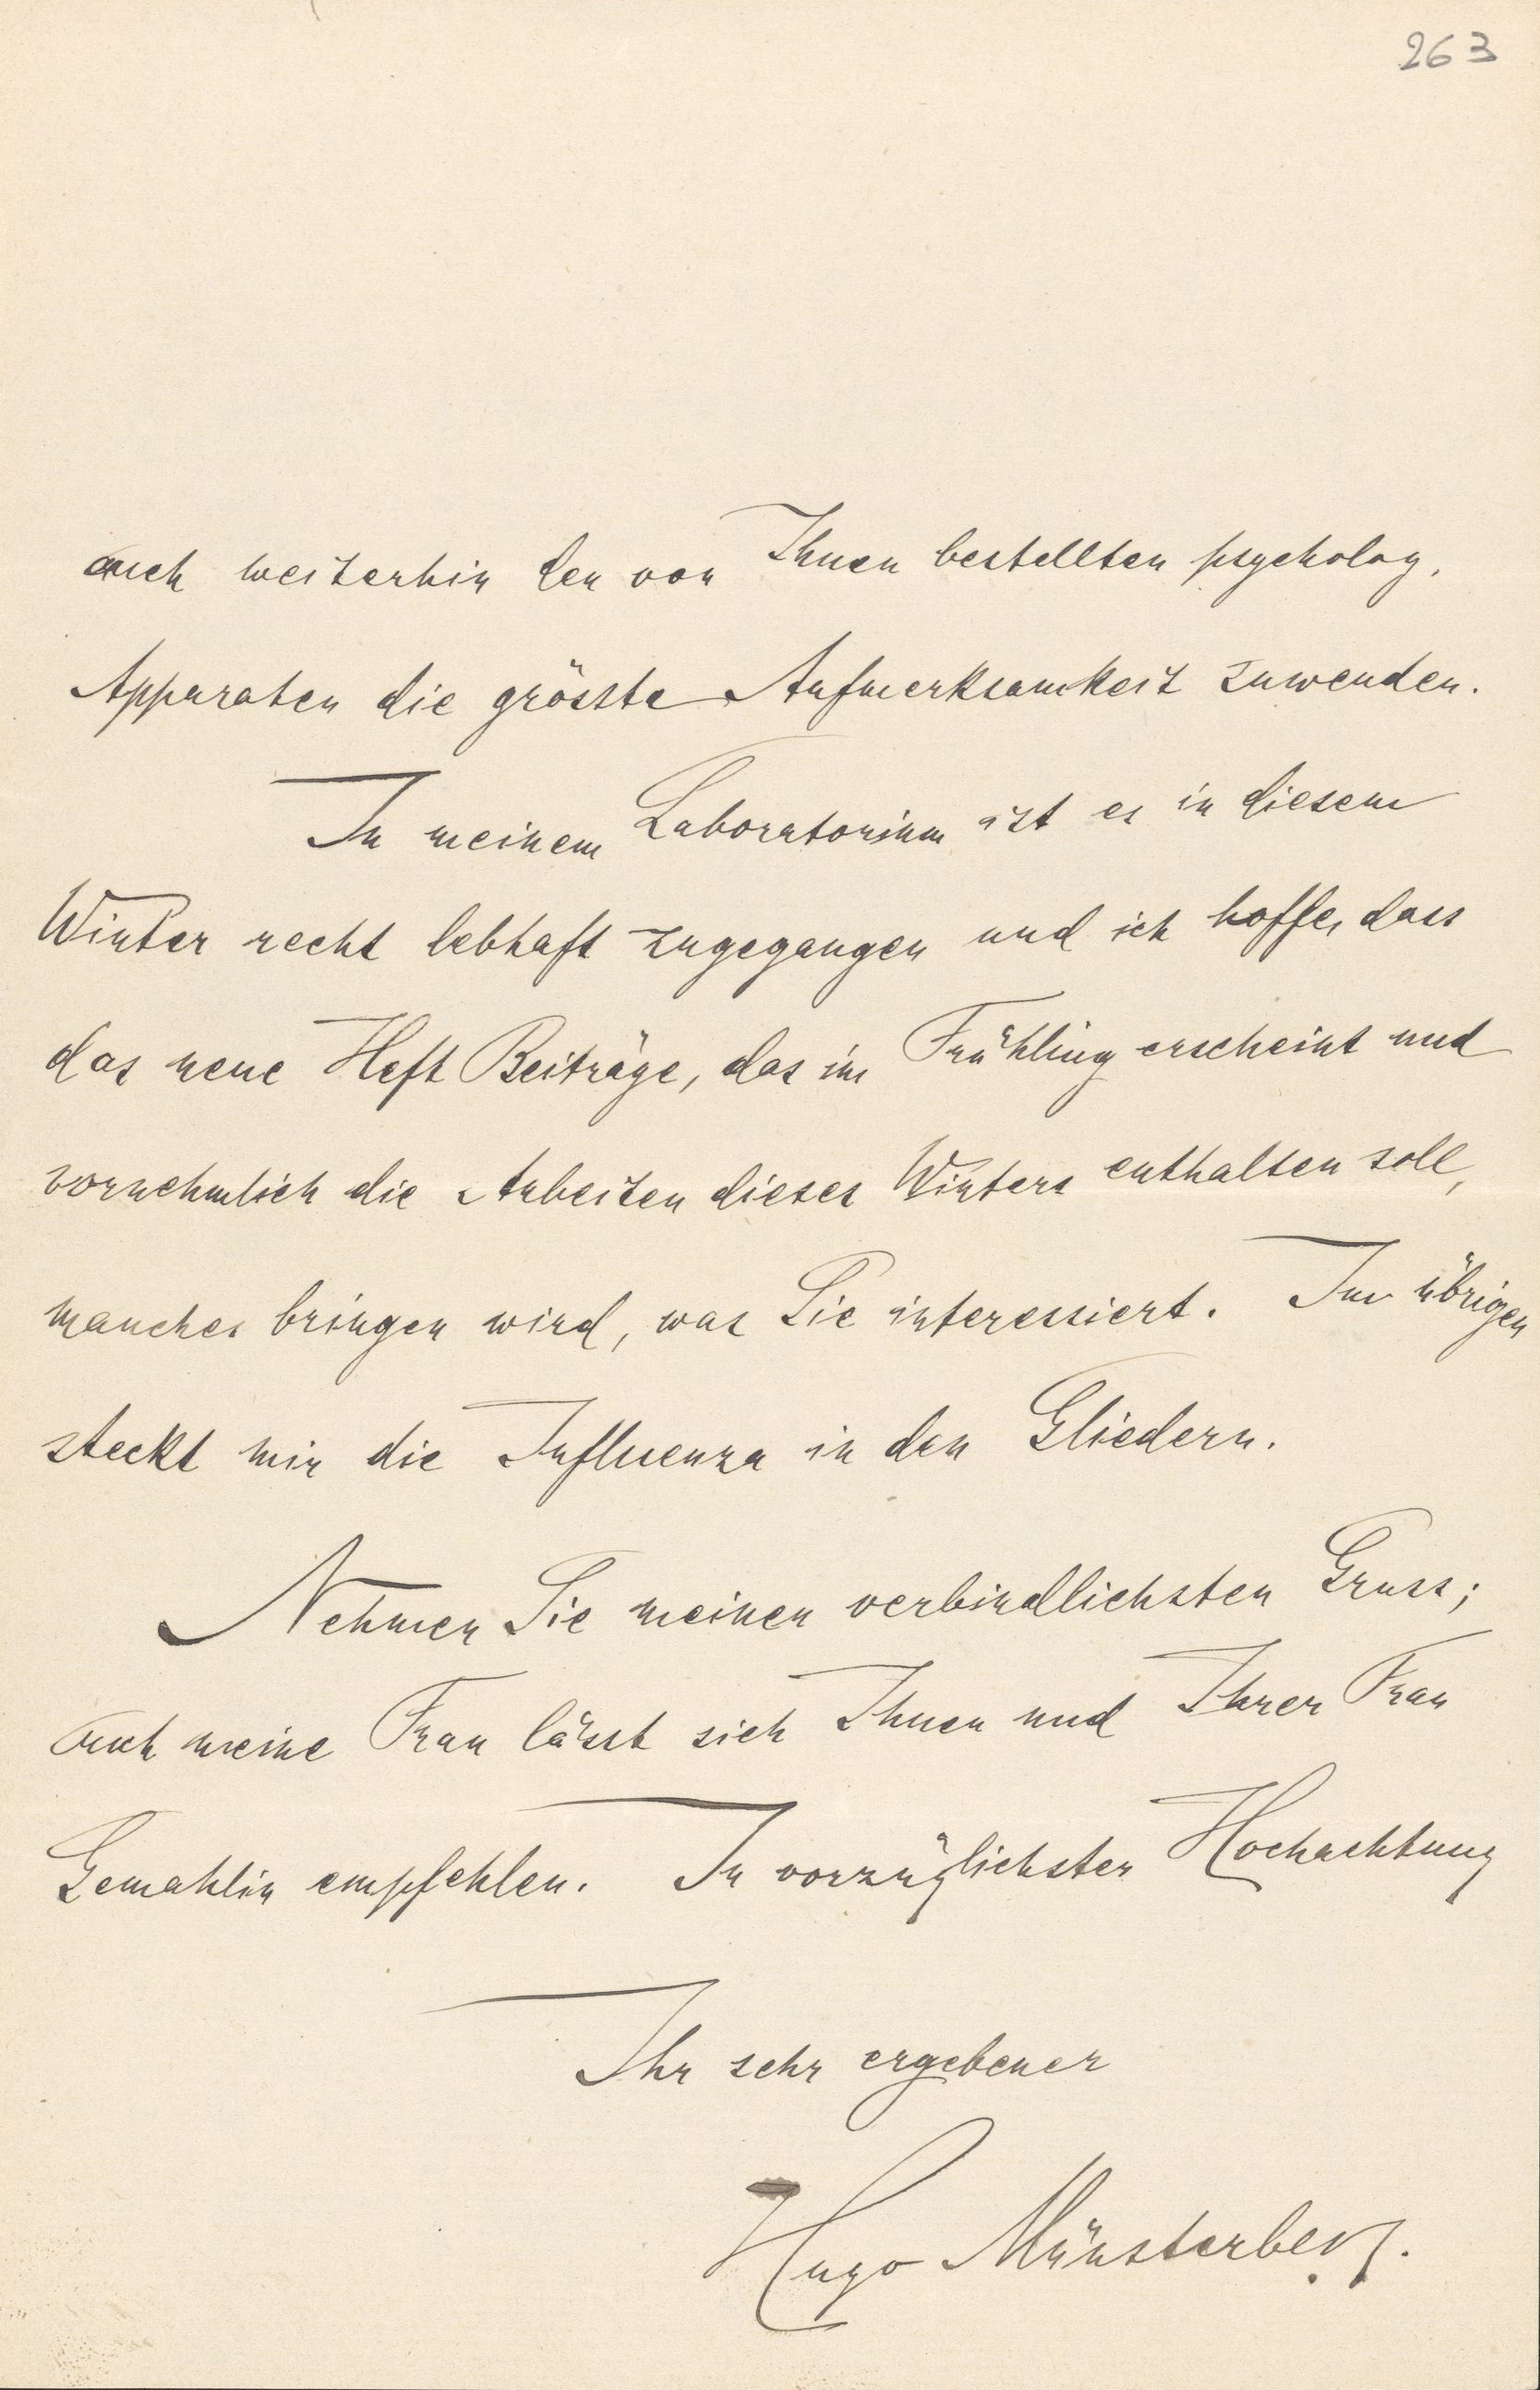 263
auch weiterhin den von Ihnen bestellten psycholog.
Apparaten die grösste Aufmerksamkeit zuwenden.
In meinem Laboratorium ist es in diesem
Winter recht lebhaft zugegangen und ich hoffe, dass
das neue Heft Beiträge, das im Frühling erscheint und
vornehmlich die Arbeiten dieses Winters enthalten soll,
manches bringen wird, was Sie interessiert. Im übrigen
steckt mir die Influenza in den Gliedern.
Nehmen Sie meinen verbindlichsten Gruss;
auch meine Frau lässt sich Ihnen und Ihrer Frau
Gemahlin empfehlen. In vorzüglichster Hochachtung
Ihr sehr ergebener
Hugo Münsterberg.